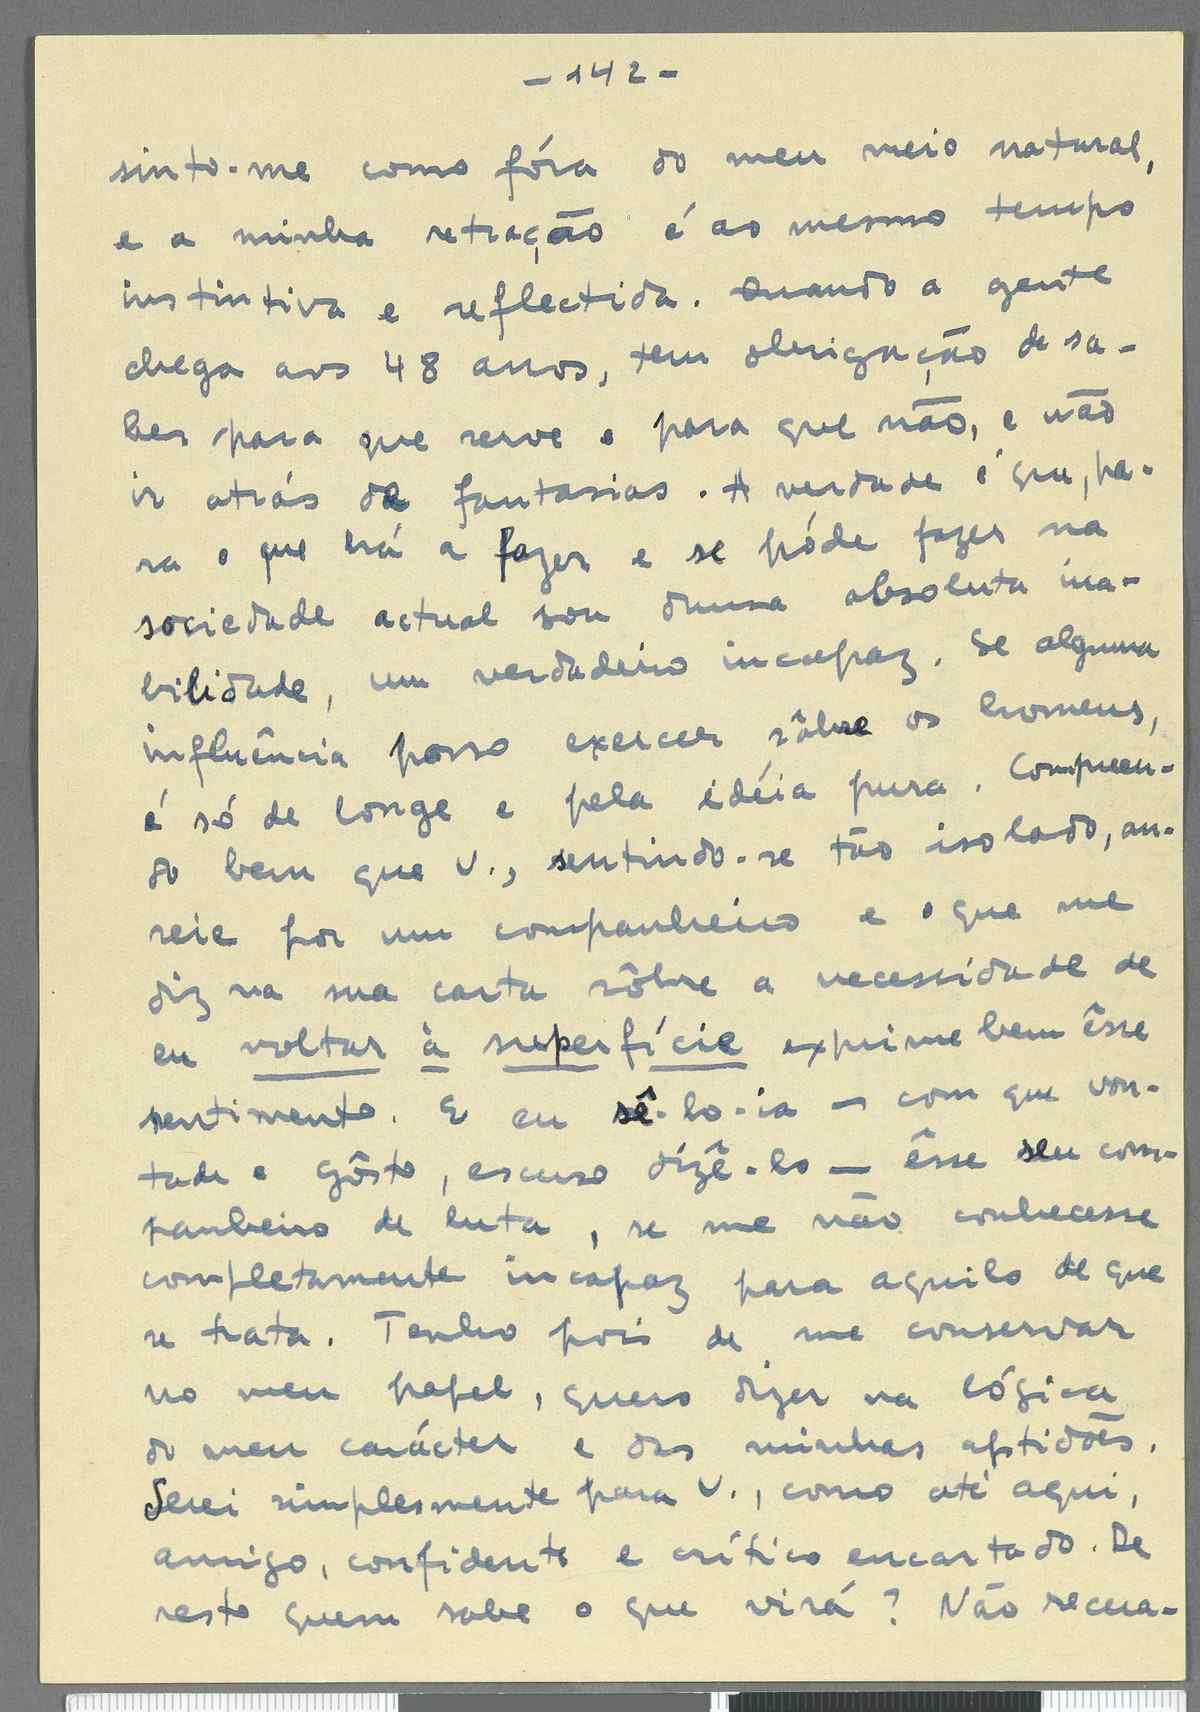 - 142 -
sinto-me como fóra do meu meio natural,
e a minha retracção é ao mesmo tempo
instintiva e reflectida. Quando a gente
chega aos 48 anos, tem obrigação de sa-
ber para que serve e para que não, e não
ir atrás de fantasias. A verdade é que, pa-
ra o que há a fazer e se póde fazer na
sociedade actual sou duma absoluta ina-
bilidade, um verdadeiro incapaz. Se alguma
influência posso exercer sôbre os homens,
é só de longe e pela idéia pura. Compreen-
do bem que V., sentindo-se tão isolado, an-
seie por um companheiro e o que me
diz na sua carta sôbre a necessidade de
eu voltar à superfície exprime bem êsse
sentimento. E eu sê-lo-ia — com que von-
tade e gôsto, escuso dizê-lo — êsse seu com-
panheiro de luta, se me não conhecesse
completamente incapaz para aquilo de que
se trata. Tenho pois de me conservar
no meu papel, quero dizer na lógica
do meu carácter e das minhas aptidões.
Serei simplesmente para V., como até aqui,
amigo, confidente e crítico encartado. De
resto quem sabe o que virá? Não recua-